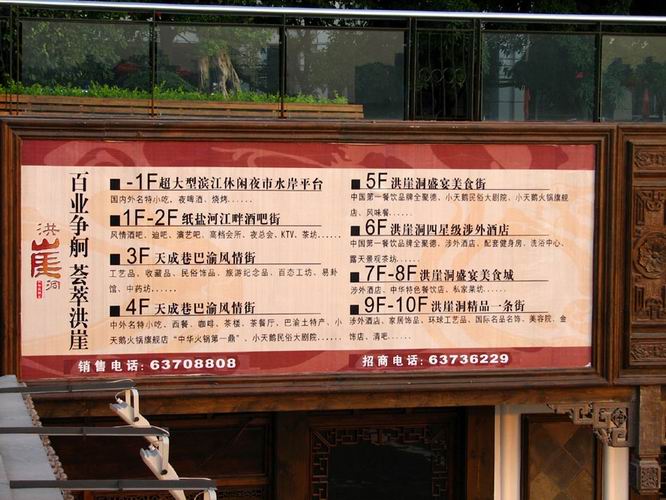 百业争舸 荟萃洪崖
洪崖洞
-1F超大型滨江休闲夜市水岸平台
国内外名特小吃，夜啤酒、烧烤......
1F-2F 纸盐河江畔酒吧街
风情酒吧、迪吧、演艺吧、高档会所、夜总会、KTV、茶坊......
3F 天成巷巴渝风情街
工艺品、收藏品、民俗饰品、旅游纪念品、百态工坊、易卦
馆、中药坊......
4F 天成巷巴渝风情街
中外名特小吃、西餐、咖啡、茶楼、茶餐厅、巴渝土特产、小
天鹅火锅旗舰店“中华火锅第一鼎”、小天鹅民俗大剧院......
5F 洪崖洞盛宴美食街
中国第一餐饮品牌全聚德、小天鹅民俗大剧院、小天鹅火锅旗舰
店、风味餐......
6F 洪崖洞四星级涉外酒店
中国第一餐饮品牌全聚德、涉外酒店、配套健身房、洗浴中心、
露天景观茶坊......
7F-8F 洪崖洞盛宴美食城
涉外酒店、中华特色餐饮店、私家菜坊......
9F-10F 洪崖洞精品一条街
涉外酒店、家居饰品、环球工艺品、国际名品名饰、美容院、金
饰店、清吧......
销售电话: 63708808
招商电话: 63736229